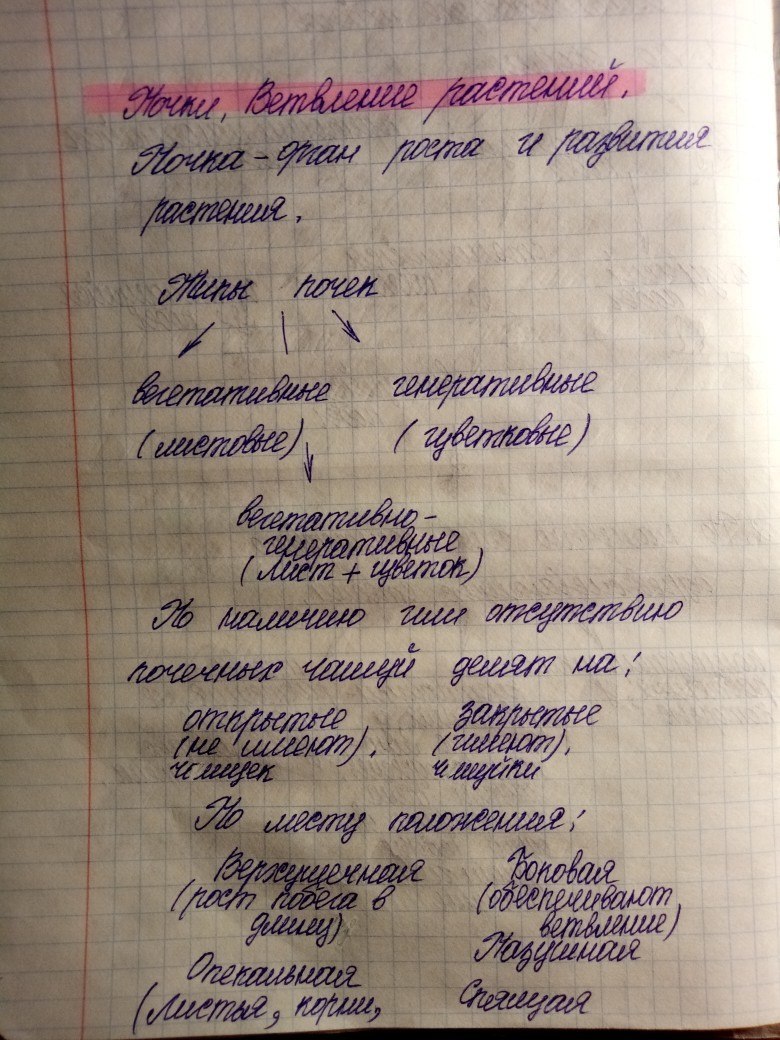 Почки, Ветвление растений.
Почка - орган роста и развития
растения.
Типы почек
вегетативные генеративные
(листовые) (цветковые)
вегетативно-
генеративные
(лист + цветок)
По наличию или отсутствию
почечных чашуй делят на:
открытые закрытые
(не имеют). (имеют).
чешуйки
По месту положения:
Верхушечная Боковая
(рост побега в (обеспечивают
длину) ветвление)
Пазушная
Опекальная
(Листья, корни, Спящая